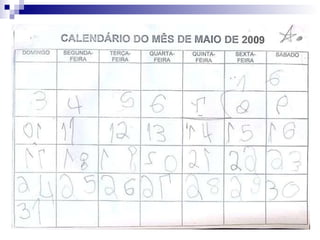 CALENDÁRIO DO MÊS DE MAIO DE 2009 A.
DOMINGO SEGUNDA-FEIRA TERÇA-FEIRA QUARTA-FEIRA QUINTA-FEIRA SEXTA-FEIRA SÁBADO
1 6
3 4 5 6 7 8 9
01 11 12 13 14 15 16
17 18 19 20 21 22 23
24 25 26 27 28 29 30
31